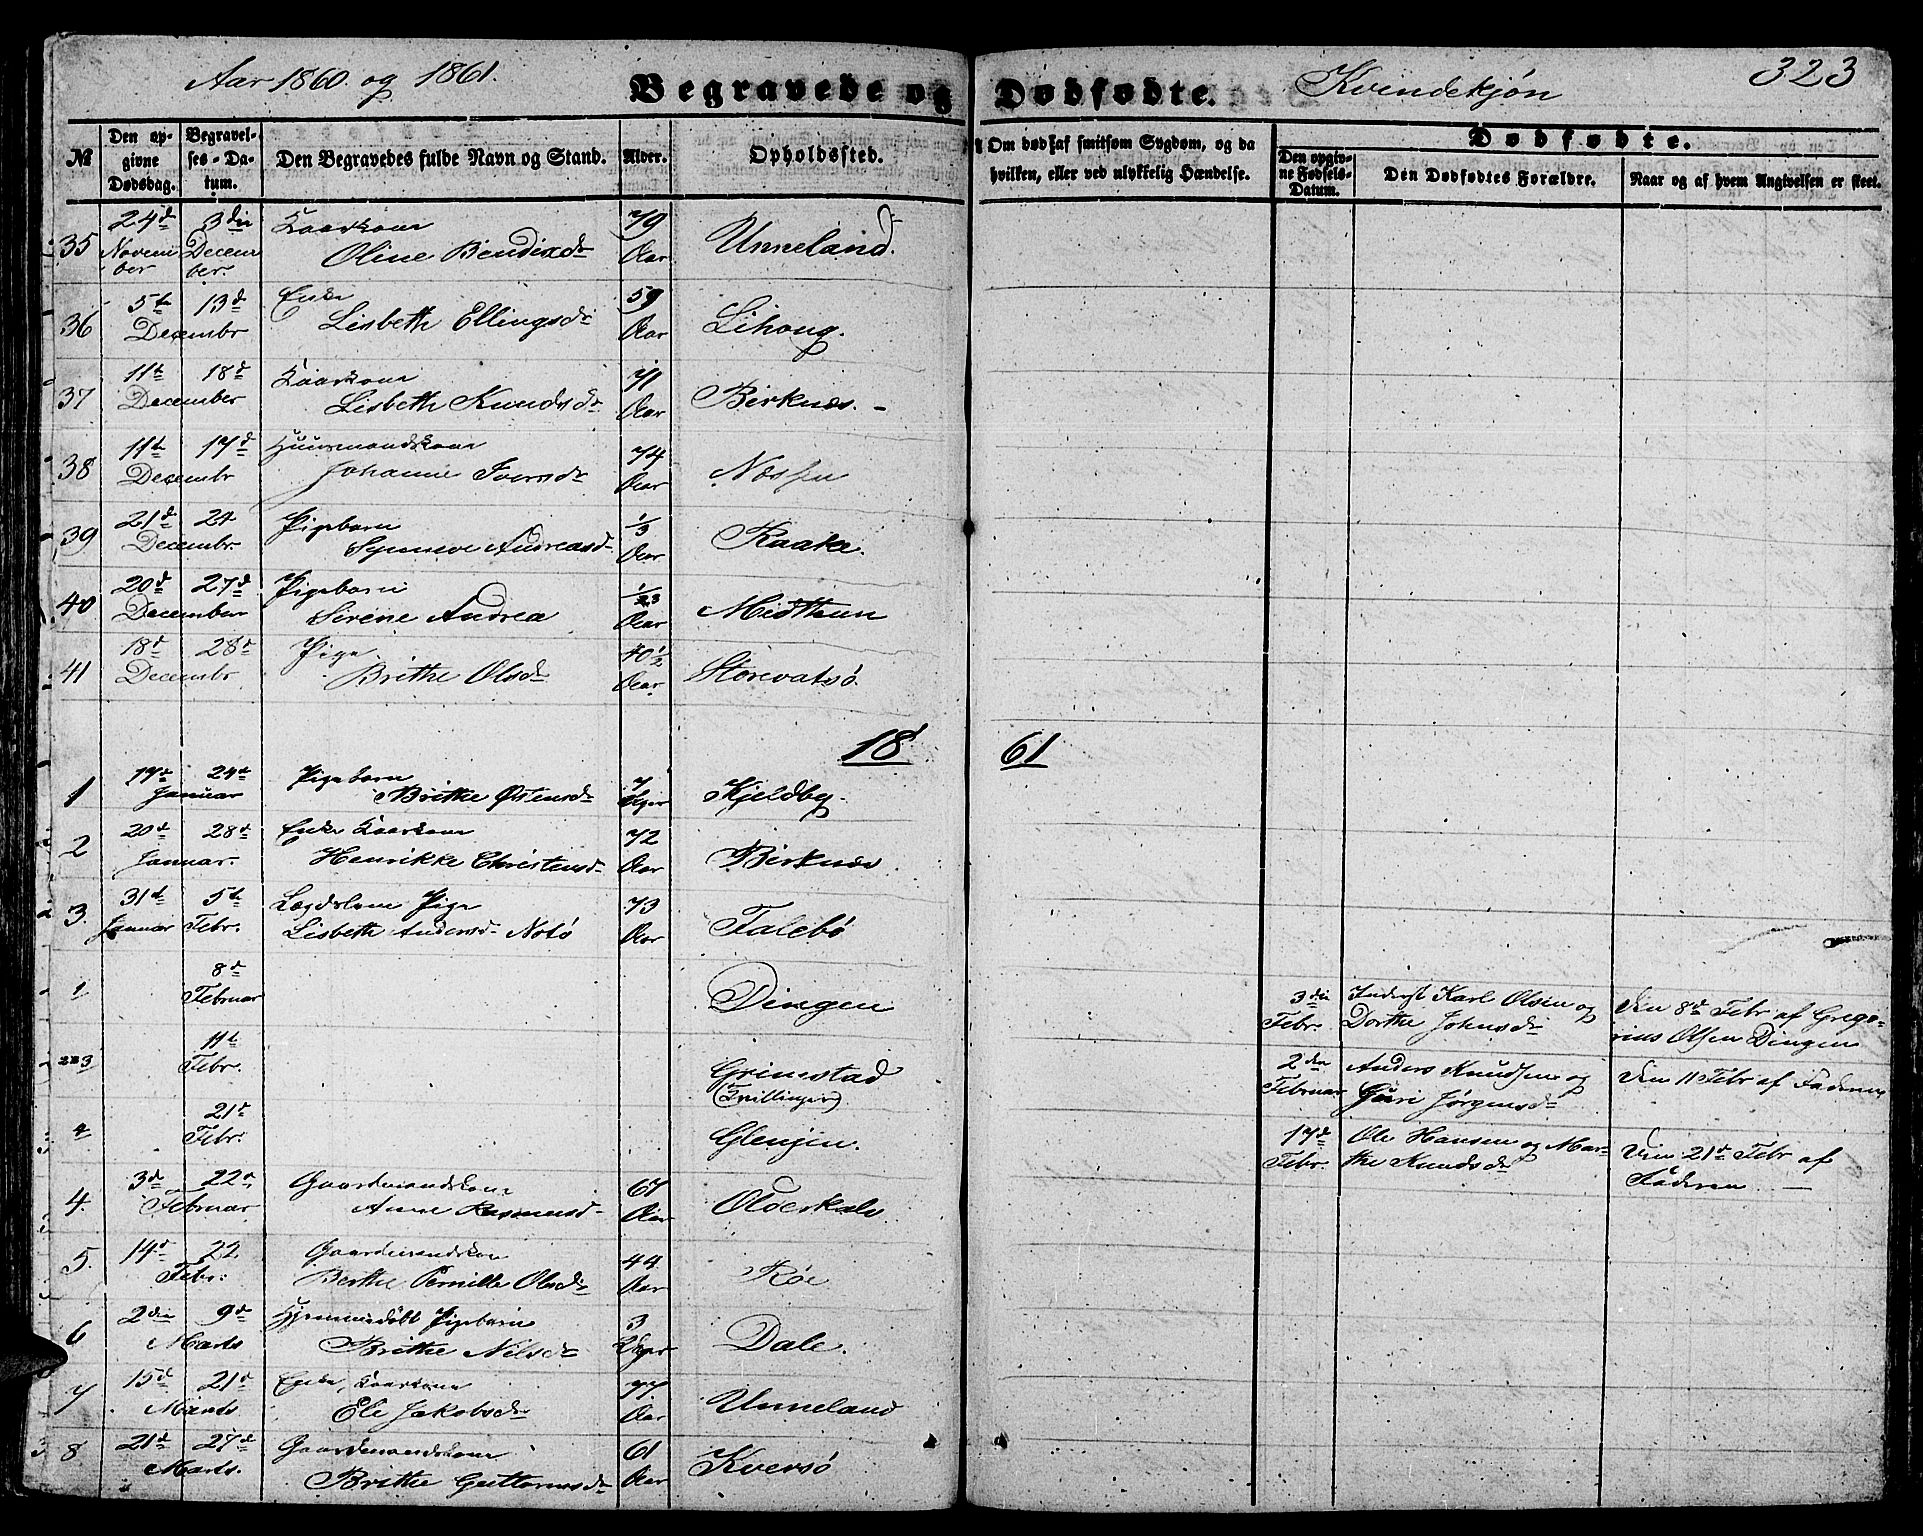 Aar 1860. og 1861.
Begravede og Dødfødte.
Kvindekjøn
323
№
Den opgivne Dødsdag.
Begravelses-Datum.
Den Begravedes fulde Navn og Stand.
Alder.
Opholdssted.
Om død af smitsom Sygdom, og da
hvilken, eller ved ulykkelig Hændelse.
Dødfødte.
Den opgivne Fødsels-Datum.
Den Dødfødtes Forældre.
Naar og af hvem Angivelsen er skeet.
35 24d November 3die December Kaarkone
Oline Bendixdr 79 Aar Unneland.
36 5te 13d December Enke
Lisbeth Ellingsdr 59 Aar Lihoug.
37 11te 18d December Kaarkone
Lisbeth Knudsdr 71 Aar Birknes.
38 11te 17d Decembr Huusmandskone
Johanne Iversdr 74 Aar
39 21d 24 Decembr. Pigebarn
Synneve Andreasd. 1/3 Aar Raake.
40 20d 27d December Pigebarn
Sirene Andrea Aar Midthun
41 18d 28d Decembr Pige
Brithe Olsdr 40 1/2 Aar Storevatsø.
1861
1 17d 24d Januar Pigebarn
Brithe Østensdr 7 Uger Kjeldby.
2 20d 28d Januar. Enke Kaarkone
Henrikke Christensd. 72 Aar Birknes.
3. 31d Januar 5te Febr. Lægdslem Pige
Lisbeth Andersd. Notø 73 Aar Falebø
1 8d Februar Dingen
3die Febr. Inderst Karl Olsen og
Dorthe Johnsdr
Den 8d Febr af Grego-
rius Olsen Dingen
2 & 3 11te Febr. Grimstad
(Tvillinger)
2den Februar Anders Knudsen og
Guri Jørgensdr
Den 11 Febr af Faderen
4 21d Febr. Glenjen.
17d Febr. Ole Hansen og Mar-
the Knudsdr
Den 21d Febr af
Faderen. —
4. 3d 22d Februar Gaardmandskone
Anne Rasmusd. 67 Aar
5. 14d 22 Febr. Gaardmandskone
Berthe Pernille Olsdr 44 Aar Røe
6 2den 9d Marts Hjemmedøbt Pigebarn
Brithe Nilsdr 3 Uger Dale.
7 15d 21d Marts Enke, Kaarkone
Eli Jakobsdr 77 Aar Unneland
8 21d 27d Marts. Gaardmandskone
Brithe Guttormsdr 61 Aar Kversø